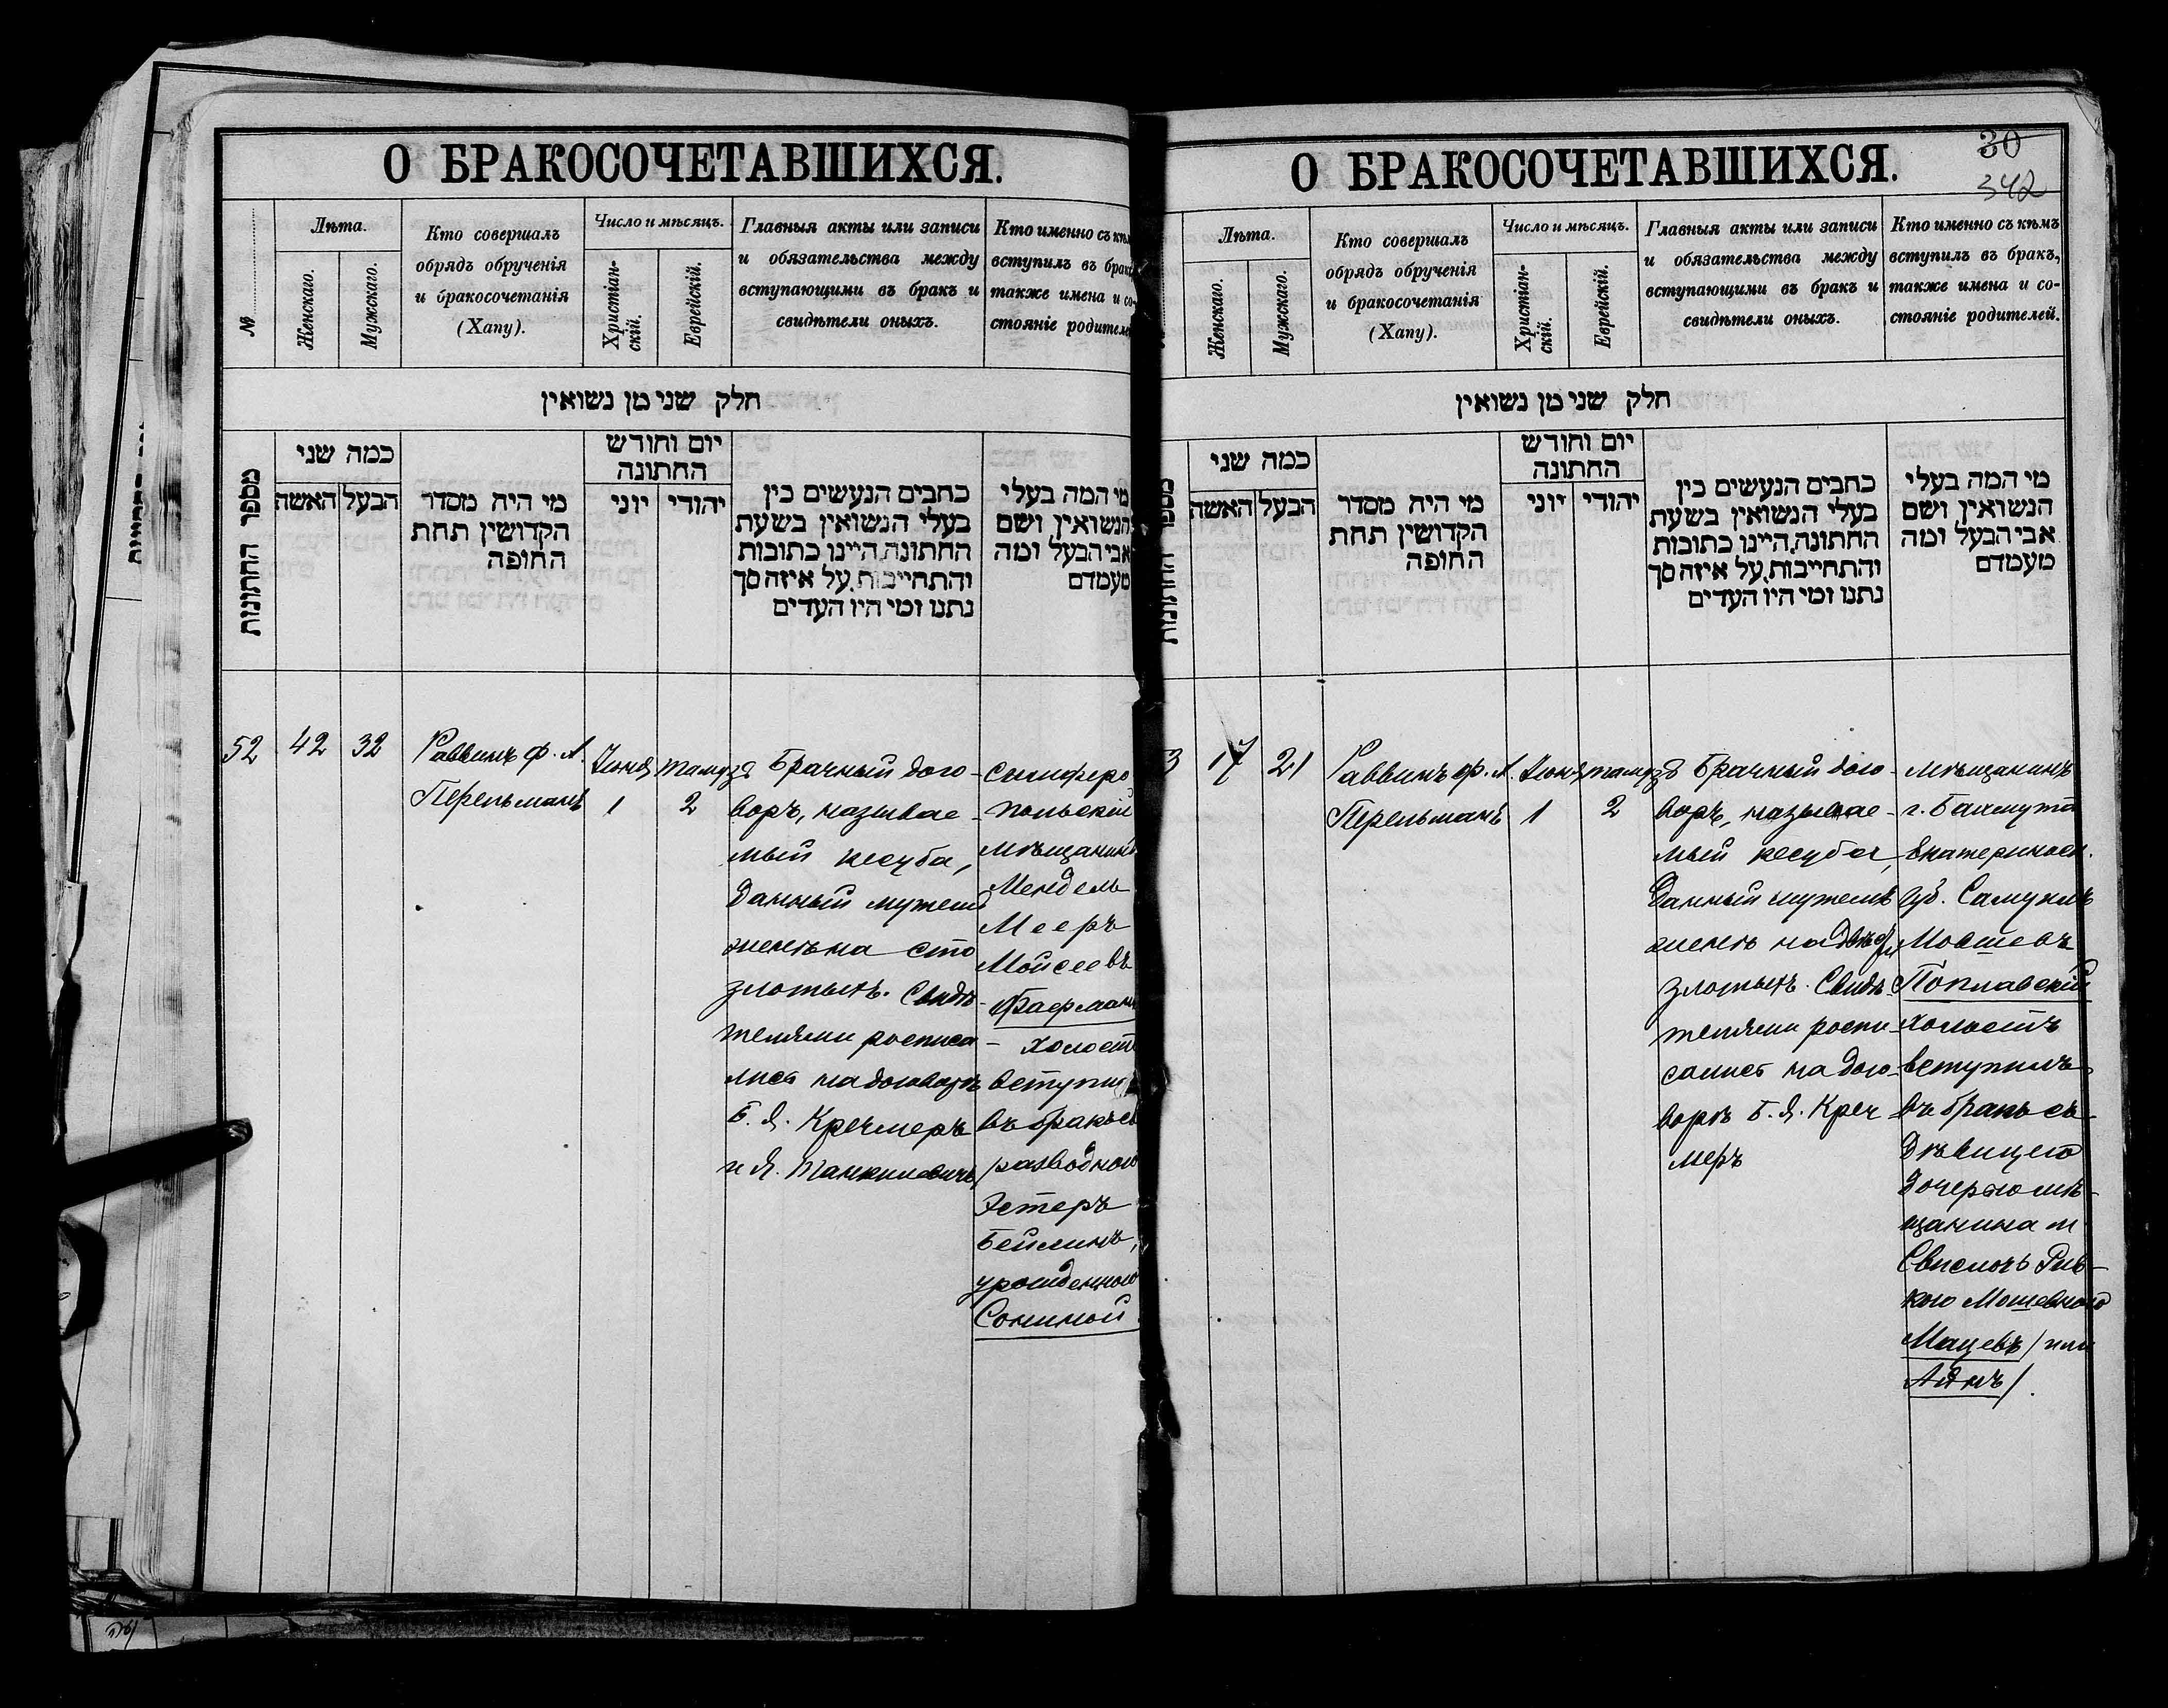 О БРАКОСОЧЕТАВШИХСЯ.
№
Лѣта.
Женскаго.
Мужскаго.
Кто совершалъ
обрядъ обрученія
и бракосочетанія
(Хапу).
Число и мѣсяцъ.
Христіан-
скій.
Еврейскій.
Главныя акты или записи
и обязательства между
вступающими въ бракъ и
свидѣтели оныхъ.
Кто именно съ
вступилъ въ
также имена и со-
стояніе
חלק שני מן נשואין
מספר החתונות
כמה שני
האשה
הבעל
מי היה מסדר
הקדושין תחת
החופה
יום וחודש
החתונה
יוני
יהודי
כתבים הנעשים בין
בעלי הנשואין בשעת
החתונה,היינו כתובות
והתחייבות,על איזה סך
נתנו ומי היו העדים
מי המה בעלי
הנשואין ושם
אבי הבעל ומה
מעמדם
52
42
32
Раввинъ Ф. А.
Перельманъ
Іюня
1
тамуза
2
Брачный дого-
воръ, называе-
мый кесуба,
данный мужемъ
женѣ на сто
злотыхъ. Свидѣ-
телями росписа-
лись на договорѣ
Б. Я. Кречмеръ
и Я. Танкилевичъ
Симферо
польскій
мѣщанинъ
Мендель
Мееръ
Мойсеевъ
холостъ
вступилъ
въ бракъ съ
разводною
Эстеръ
Бейлинъ,
урожденною
Сониной.
О БРАКОСОЧЕТАВШИХСЯ.
30
342
Лѣта.
Женскаго.
Мужскаго.
Кто совершалъ
обрядъ обрученія
и бракосочетанія
(Хапу).
Число и мѣсяцъ.
Христіан-
скій.
Еврейскій.
Главныя акты или записи
и обязательства между
вступающими въ бракъ и
свидѣтели оныхъ.
Кто именно съ кѣмъ
вступилъ въ бракъ,
также имена и со-
стояніе родителей.
חלק שני מן נשואין
כמה שני
האשה
הבעל
מי היה מסדר
הקדושין תחת
החופה
יום וחודש
החתונה
יוני
יהודי
כתבים הנעשים בין
בעלי הנשואין בשעת
החתונה,היינו כתובות
והתחייבות,על איזה סך
נתנו ומי היו העדים
מי המה בעלי
הנשואין ושם
אבי הבעל ומה
מעמדם
3
17
21
Раввинъ Ф. А.
Перельманъ
Іюня
1
тамуза
2
Брачный дого-
воръ, называе-
мый кесуба,
данный мужемъ
женѣ на
злотыхъ. Свидѣ-
телями роспи-
сались на дого-
ворѣ Б. Я. Креч
меръ
мѣщанинъ
г. Бахмута
Екатериносл.
губ. Самуилъ
Мовшевъ
Поплавскій
холостъ
вступилъ
въ бракъ съ
дѣвицею
дочерью мѣ-
щанина м.
Свислочъ Рив-
кою Мошевною
Мацевъ / или
/.